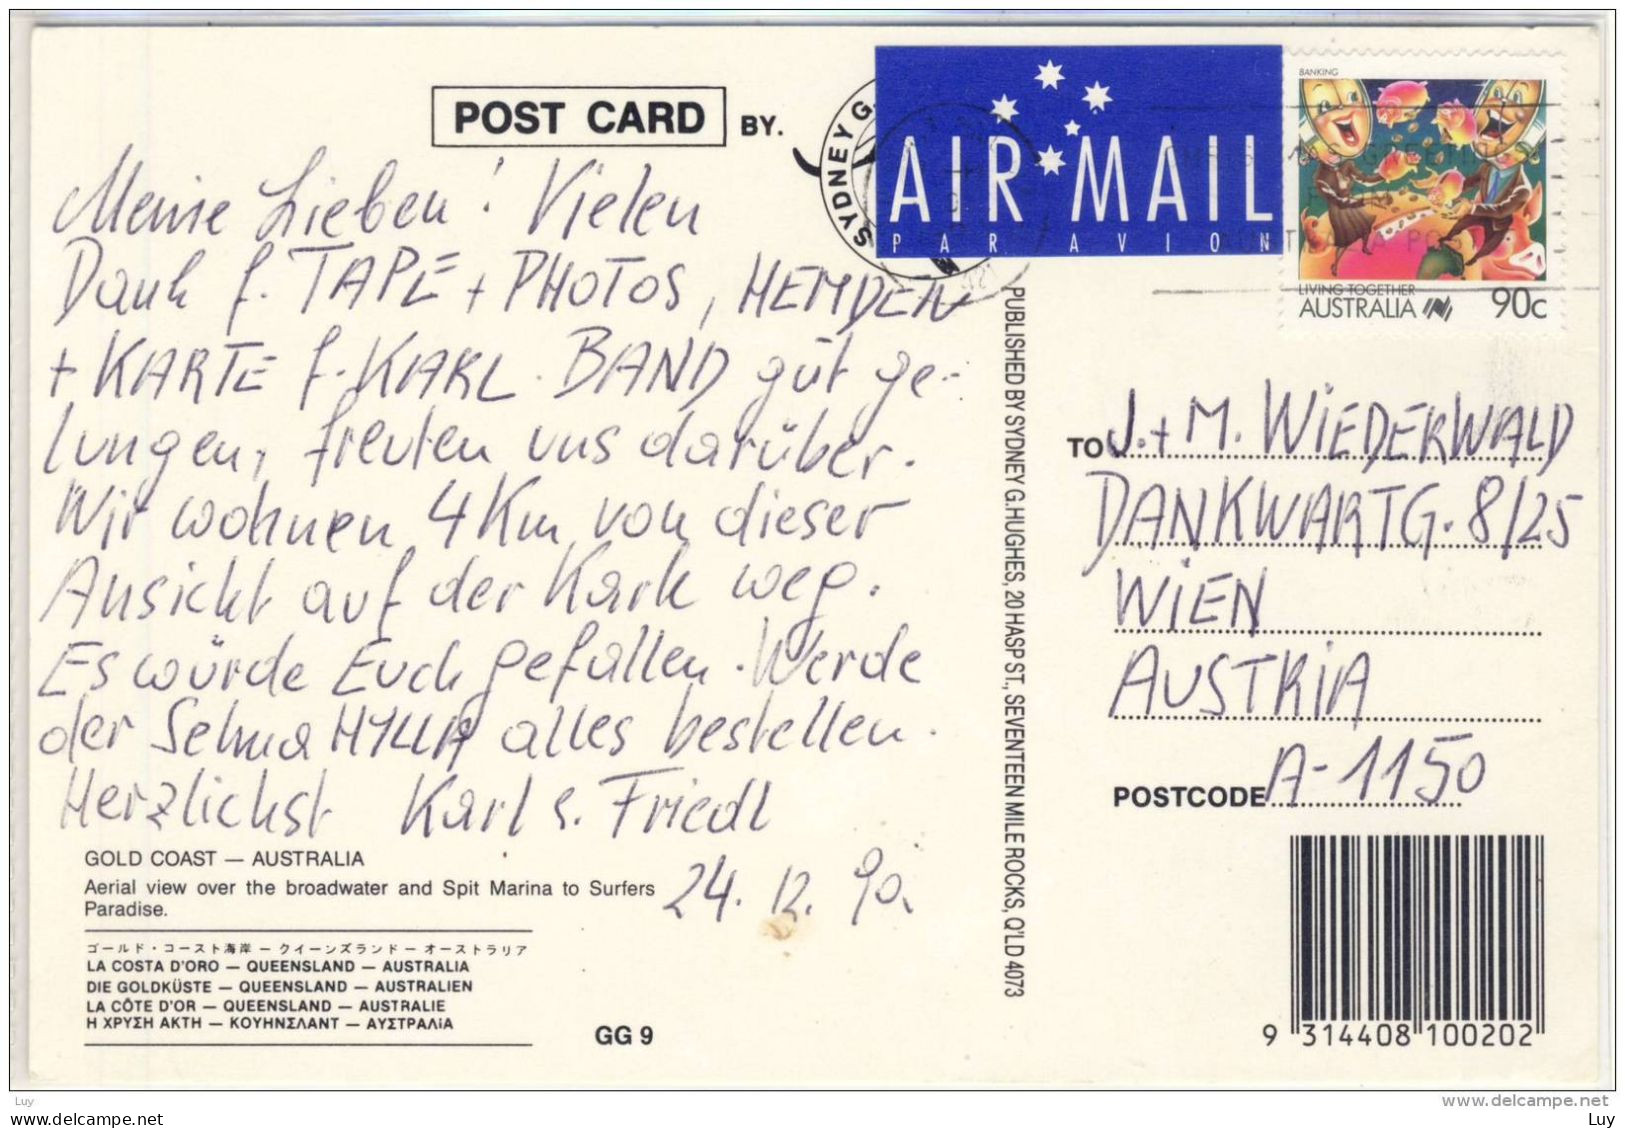 POST CARD BY.
SYDNEY G.
AIR MAIL
PAR AVION
BANKING
LIVING TOGETHER
AUSTRALIA 90c
Meine Lieben! Vielen
Dank f. TAPE + PHOTOS, HEMDEN
+ KARTE f. KARL. BAND gut ge-
lungen, freuten uns darüber.
Wir wohnen 4 Km von dieser
Ansicht auf der Kark weg.
Es würde Euch gefallen. Werde
der Selma HYLLA alles bestellen.
Herzlichst Karl s. Friedl
24. 12. 90.
GOLD COAST — AUSTRALIA
Aerial view over the broadwater and Spit Marina to Surfers
Paradise.
ゴールド・コースト海岸 — クイーンズランド — オーストラリア
LA COSTA D'ORO — QUEENSLAND — AUSTRALIA
DIE GOLDKÜSTE — QUEENSLAND — AUSTRALIEN
LA CÔTE D'OR — QUEENSLAND — AUSTRALIE
Η ΧΡΥΣΗ ΑΚΤΗ — ΚΟΥΗΝΣΛΑΝΤ — ΑΥΣΤΡΑΛιΑ
GG 9
PUBLISHED BY SYDNEY G. HUGHES, 20 HASP ST., SEVENTEEN MILE ROCKS, Q'LD 4073
TO J. + M. WIEDERWALD
DANKWARTG. 8/25
WIEN
AUSTRIA
POSTCODE A-1150
9 314408 100202
Luy
www.delcampe.net
Luy
Luy